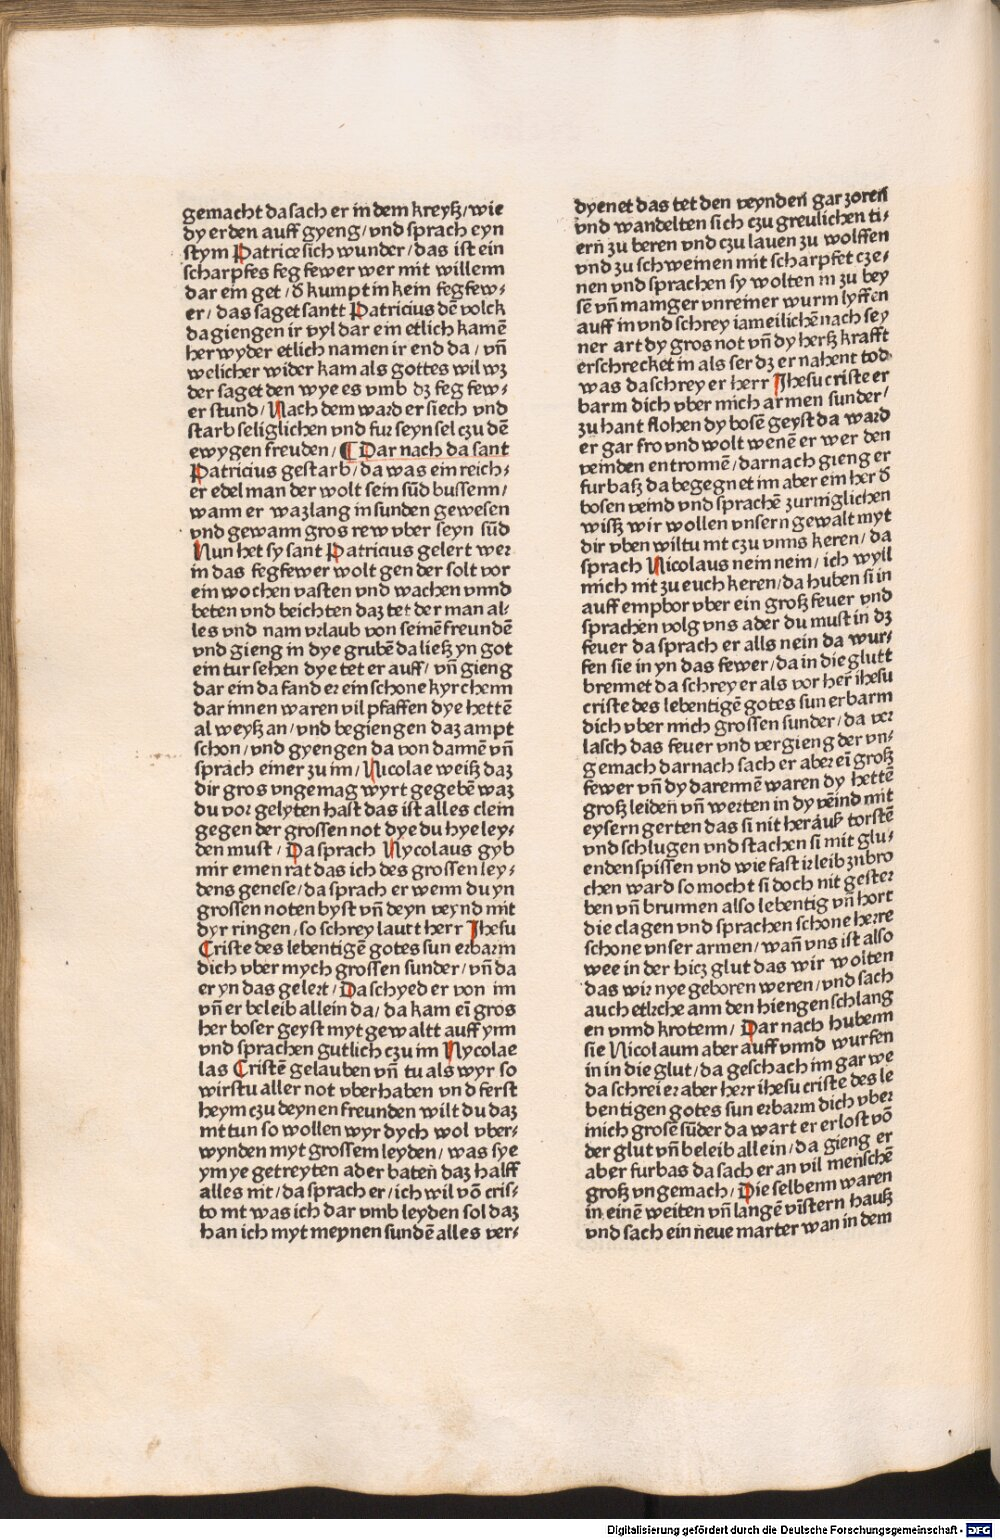 gemacht da sach er in dem kreyß/wie
dy erden auff gyeng/vnd sprach eyn
stym Patrice sich wunder/das ist ein
scharpfes feg fewer wer mit willenn
dar ein get/d̄ kumpt in kein fegfew⸗
er/das saget santt Patricius dē volck
da giengen ir vyl dar ein etlich kamē
her wyder etlich namen ir end da/vn̄
welicher wider kam als gottes wil wz
der saget den wye es vmb dz feg few⸗
er stund/Nach dem ward er siech vnd
starb seliglichen vnd fur seyn sel czu dē
ewygen freuden/¶ Dar nach da sant
Patricius gestarb/da was ein reich⸗
er edel man der wolt sein sūd bussenn/
wann er waz lang in sunden gewesen
vnd gewann gros rew vber seyn sūd
Nun het sy sant Patricius gelert wer
in das fegfewer wolt gen der solt vor
ein wochen vasten vnd wachen vnnd
beten vnd beichten daz tet der man al⸗
les vnd nam vrlaub von seinē freundē
vnd gieng in dye grubē da ließ yn got
ein tur sehen dye tet er auff/vn̄ gieng
dar ein da fand er ein schone kyrchenn
dar innen waren vil pfaffen dye hettē
al weyß an/vnd begiengen daz ampt
schon/vnd gyengen da von dannē vn̄
sprach einer zu im/Nicolae weiß daz
dir gros vngemag wyrt gegebē waz
du vor gelyten hast das ist alles clein
gegen der grossen not dye du hye ley⸗
den must/Da sprach Nycolaus gyb
mir einen rat das ich des grossen ley⸗
dens genese/da sprach er wenn du yn
grossen noten byst vn̄ deyn veynd mit
dyr ringen/so schrey laut herr Jhesu
Criste des lebentigē gotes sun erbarm
dich vber mych grossen sunder/vn̄ da
er yn das gelert/Da schyed er von im
vn̄ er beleib allein da/da kam eī gros
her boser geyst myt gewaltt auff ynn
vnd sprachen gutlich czu im Nycolae
las Cristē gelauben vn̄ tu als wyr so
wirstu aller not vberhaben vnd ferst
heym czu deynen freunden wilt du daz
nit tun so wollen wyr dych wol vber⸗
wynden myt grossem leyden/was sye
ym ye getreyten ader baten̄ daz halff
alles nit/da sprach er/ich wil vō cris⸗
to nit was ich dar vmb leyden sol daz
han ich myt meynen sundē alles ver⸗
dyenet das tet den veynden gar zoren
vnd wandelten sich czu greulichen ti⸗
ern̄ zu beren vnd czu lauen zu wolffen
vnd zu schweinen mit scharpfet cze⸗
nen vnd sprachen sy wolten in zu bey
sē vn̄ maniger vnreiner wurm lyffen
auff in vnd schrey iameilichē nach sey
ner art dy gros not vn̄ dy herß krafft
erschrecket in als ser dz er nahent tod
was da schrey er herr Jhesu criste er
barm dich vber mich armen sunder/
zu hant flohen dy bosē geyst da ward
er gar fro vnd wolt wenē er wer den
veinden entronnē/darnach gieng er
furbaß da begegnet im aber ein her d̄
bosen veind vnd sprachē zurniglichen
wiß wir wollen vnsern gewalt myt
dir vben wiltu nit czu vnns keren/da
sprach Nicolaus nein nein/ich wyll
mich nit zu euch keren/da huben si in
auff empbor vber ein groß feuer vnd
sprachen volg vns ader du must in dz
feuer da sprach er alls nein da wur⸗
fen sie in yn das fewer/da in die glutt
brennet da schrey er als vor her̄ ihesu
criste des lebentigē gotes sun erbarm
dich vber mich grossen sunder/da ver
lasch das feuer vnd vergieng der vn⸗
gemach darnach sach er aber eī groß
fewer vn̄ dy darennē waren dy hettē
groß leiden vn̄ werten in dy vēind mit
eysern gerten das si nit herauß torstē
vnd schlugen vnd stachen si mit glu⸗
enden spissen vnd wie fast ir leib znbro
chen ward so mocht si doch nit gester
ben vn̄ brunnen also lebentig vn̄ hort
die clagen vnd sprachen schone herre
schone vnser armen/wan̄ vns ist also
wee in der hicz glut das wir wolten
das wir nye geboren weren/vnd sach
auch etliche ann den hiengen schlang
en vnnd krotenn/Dar nach hubenn
sie Nicolaum aber auff vnnd wurfen
in in die glut/da geschach im gar we
da schrei er aber herr ihesu criste des le
bentigen gotes sun erbarm dich vber
mich grosē sūder da wart er erlost vō
der glut vn̄ beleib allein/da gieng er
aber furbas da sach er an vil menschē
groß vngemach/Die selbenn waren
in einē weiten vn̄ langē vīstern hauß
vnd sach ein neue marter wan in dem
Digitalisierung gefördert durch die Deutsche Forschungsgemeinschaft - DFG